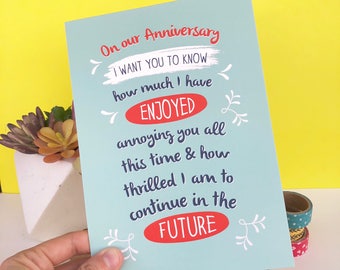 On our Anniversary
I WANT YOU TO KNOW
how much I have
ENJOYED
annoying you all
this time & how
thrilled I am to
continue in the
FUTURE